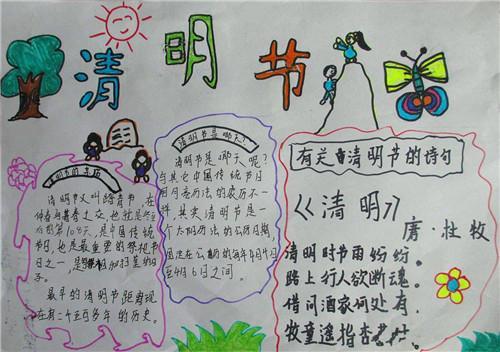 清明节
清明节又叫踏青节，在
仲春与暮春之交，也就是冬至
后的第108天，是中国传统
节日，也是最重要的祭祀节
日之一，是祭祖和扫墓的日
子。
最早的清明节距离现
在有二千五百多年的历史。
清明节是哪天?
清明节是哪天呢？
与其它中国传统节日
用月亮历法的农历不一
样，其实清明节是一
个太阳历法的公历日期，
固定在公历的每年4月4日
至4月6日之间。
有关清明节的诗句
《清明》
唐·牡牧
清明时节雨纷纷。
路上行人欲断魂。
借问酒家何处有.
牧童遥指杏